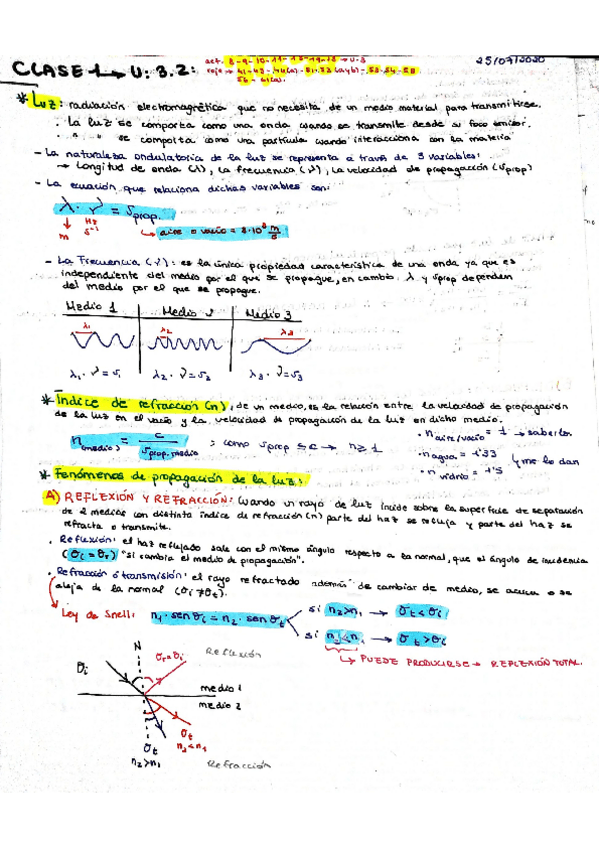 CLASE 1 → U: 3.2:
act. 8-9-10-11-
25/07/2020
* Luz: radiación electromagnética que no necesita de un medio material para transmitirse.
La luz se comporta como una onda cuando se transmite desde su foco emisor.
" " " se comporta como una partícula cuando interacciona con la materia
- La naturaleza ondulatoria de la luz se representa a través de 3 variables:
→ Longitud de onda (λ), la frecuencia (ν), la velocidad de propagación (vprop)
- La ecuación que relaciona dichas variables son:
λ · ν = vprop.
m Hz s⁻¹ → aire o vacío = 3·10⁸ m/s
- La Frecuencia (ν): es la única propiedad característica de una onda ya que es
independiente del medio por el que se propague, en cambio λ y vprop dependen
del medio por el que se propague.
Medio 1 Medio 2 Medio 3
λ₁ λ₂ λ3
λ₁ · ν = v₁ λ₂ · ν = v₂ λ3 · ν = v3
* Índice de refracción (n), de un medio, es la relación entre la velocidad de propagación
de la luz en el vacío y la velocidad de propagación de la luz en dicho medio.
n(medio) = c / vprop.medio ; como vprop ≤ c → n ≥ 1
· n aire/vacío = 1 → saberlos
· n agua = 1'33
· n vidrio = 1'5
y me lo dan
* Fenómenos de propagación de la luz:
A) REFLEXIÓN Y REFRACCIÓN: cuando un rayo de luz incide sobre la superficie de separación
de 2 medios con distinto índice de refracción (n) parte del haz se refleja y parte del haz se
refracta o transmite.
· Reflexión: el haz reflejado sale con el mismo ángulo respecto a la normal, que el ángulo de incidencia
(θi = θr) "si cambia el medio de propagación".
· Refracción o transmisión: el rayo refractado además de cambiar de medio, se acerca o se
aleja de la normal (θi ≠ θt).
Ley de Snell: n₁ · sen θi = n₂ · sen θt
si n₂>n₁ → θt < θi
si n₂<n₁ → θt > θi
↳ PUEDE PRODUCIRSE → REFLEXIÓN TOTAL.
N
θi
θr = θi
Reflexión
medio 1
medio 2
θt
n₂<n₁
θt
n₂>n₁
Refracción